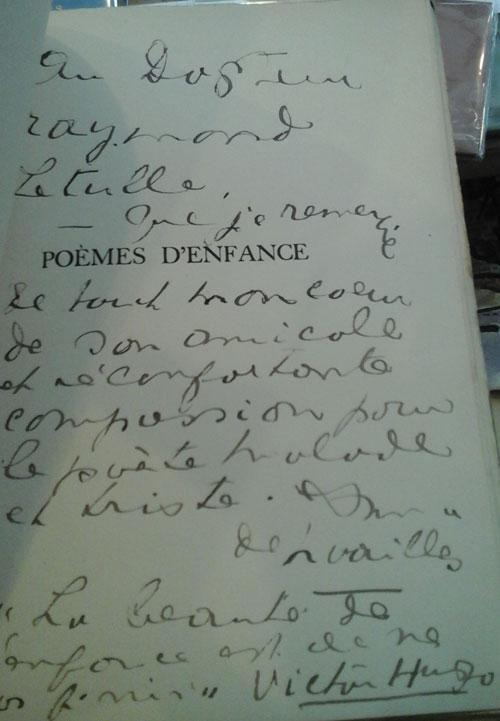 Au Docteur
raymond
Letulle,
— que je remercie
POÈMES D'ENFANCE
de tout mon coeur
de son amicale
et réconfortante
compassion pour
le poète malade
et triste. Anna
de Noailles
" La beauté de
l'enfance est de ne
pas finir " Victor Hugo